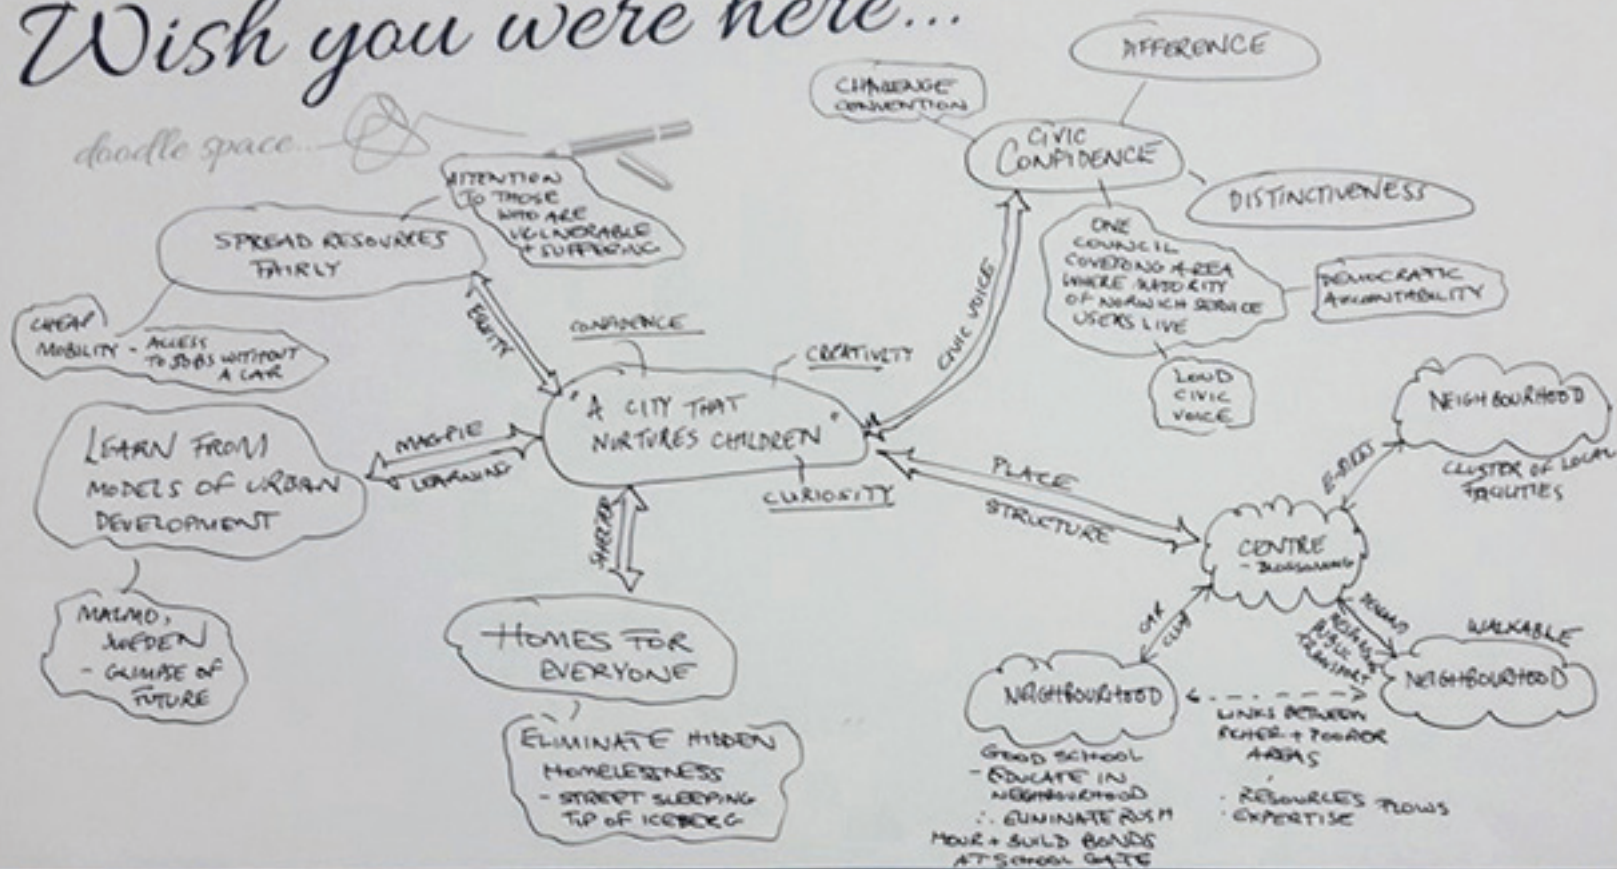 Wish you were here...
doodle space...
AFFERENCE
CHALLENGE
CONVENTION
CIVIC
CONFIDENCE
DISTINCTIVENESS
ONE
COUNCIL
COVERING AREA
WHERE MAJORITY
OF NORWICH SERVICE
USERS LIVE
DEMOCRATIC
ACCOUNTABILITY
LOUD
CIVIC
VOICE
CIVIC VOICE
ATTENTION
TO THOSE
WHO ARE
VULNERABLE
+ SUFFERING
SPREAD RESOURCES
FAIRLY
CHEAP
MOBILITY - ACCESS
TO JOBS WITHOUT
A CAR
EQUITY
CONFIDENCE
CREATIVITY
"A CITY THAT
NURTURES CHILDREN"
CURIOSITY
MAGPIE
LEARNING
LEARN FROM
MODELS OF URBAN
DEVELOPMENT
MALMO,
SWEDEN
- GLIMPSE OF
FUTURE
SHELTER
HOMES FOR
EVERYONE
ELIMINATE HIDDEN
HOMELESSNESS
- STREET SLEEPING
TIP OF ICEBERG
PLACE
STRUCTURE
CENTRE
NEIGHBOURHOOD
CLUSTER OF LOCAL
FACILITIES
CAR
CLUB
PUBLIC
TRANSPORT
WALKABLE
NEIGHBOURHOOD
NEIGHBOURHOOD
LINKS BETWEEN
RICHER + POORER
AREAS
· RESOURCES FLOWS
· EXPERTISE
GOOD SCHOOL
- EDUCATE IN
NEIGHBOURHOOD
∴ ELIMINATE RUSH
HOUR + BUILD BONDS
AT SCHOOL GATE